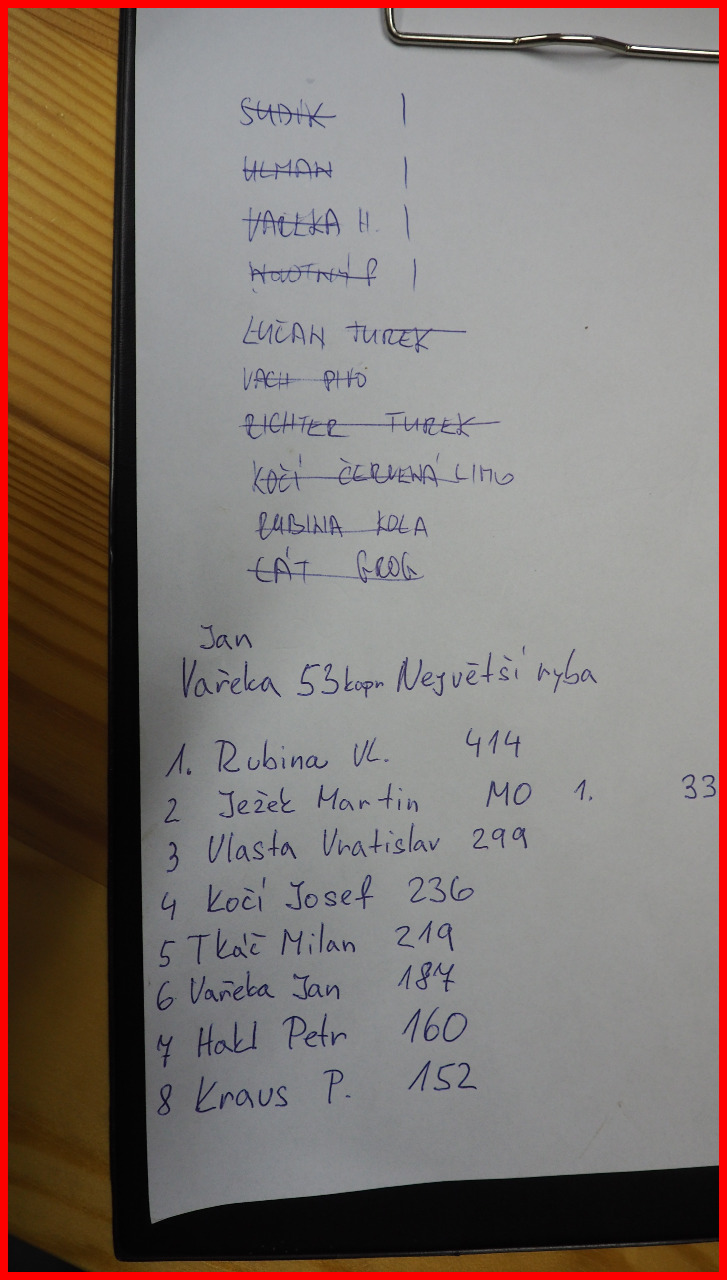 SUDIK |
ULMAN |
VAŘEKA H. |
NOVOTNÝ P |
LUČAN TUREK
VACH PIVO
RICHTER TUREK
KOČÍ ČERVENÁ LIMO
RUBINA KOLA
LÁT GROG
Jan
Vařeka 53 kapr Největší ryba
1. Rubina Vl. 414
2 Ježek Martin MO 1. 33
3 Vlasta Vratislav 299
4 Kočí Josef 236
5 Tkáč Milan 219
6 Vařeka Jan 187
7 Hakl Petr 160
8 Kraus P. 152